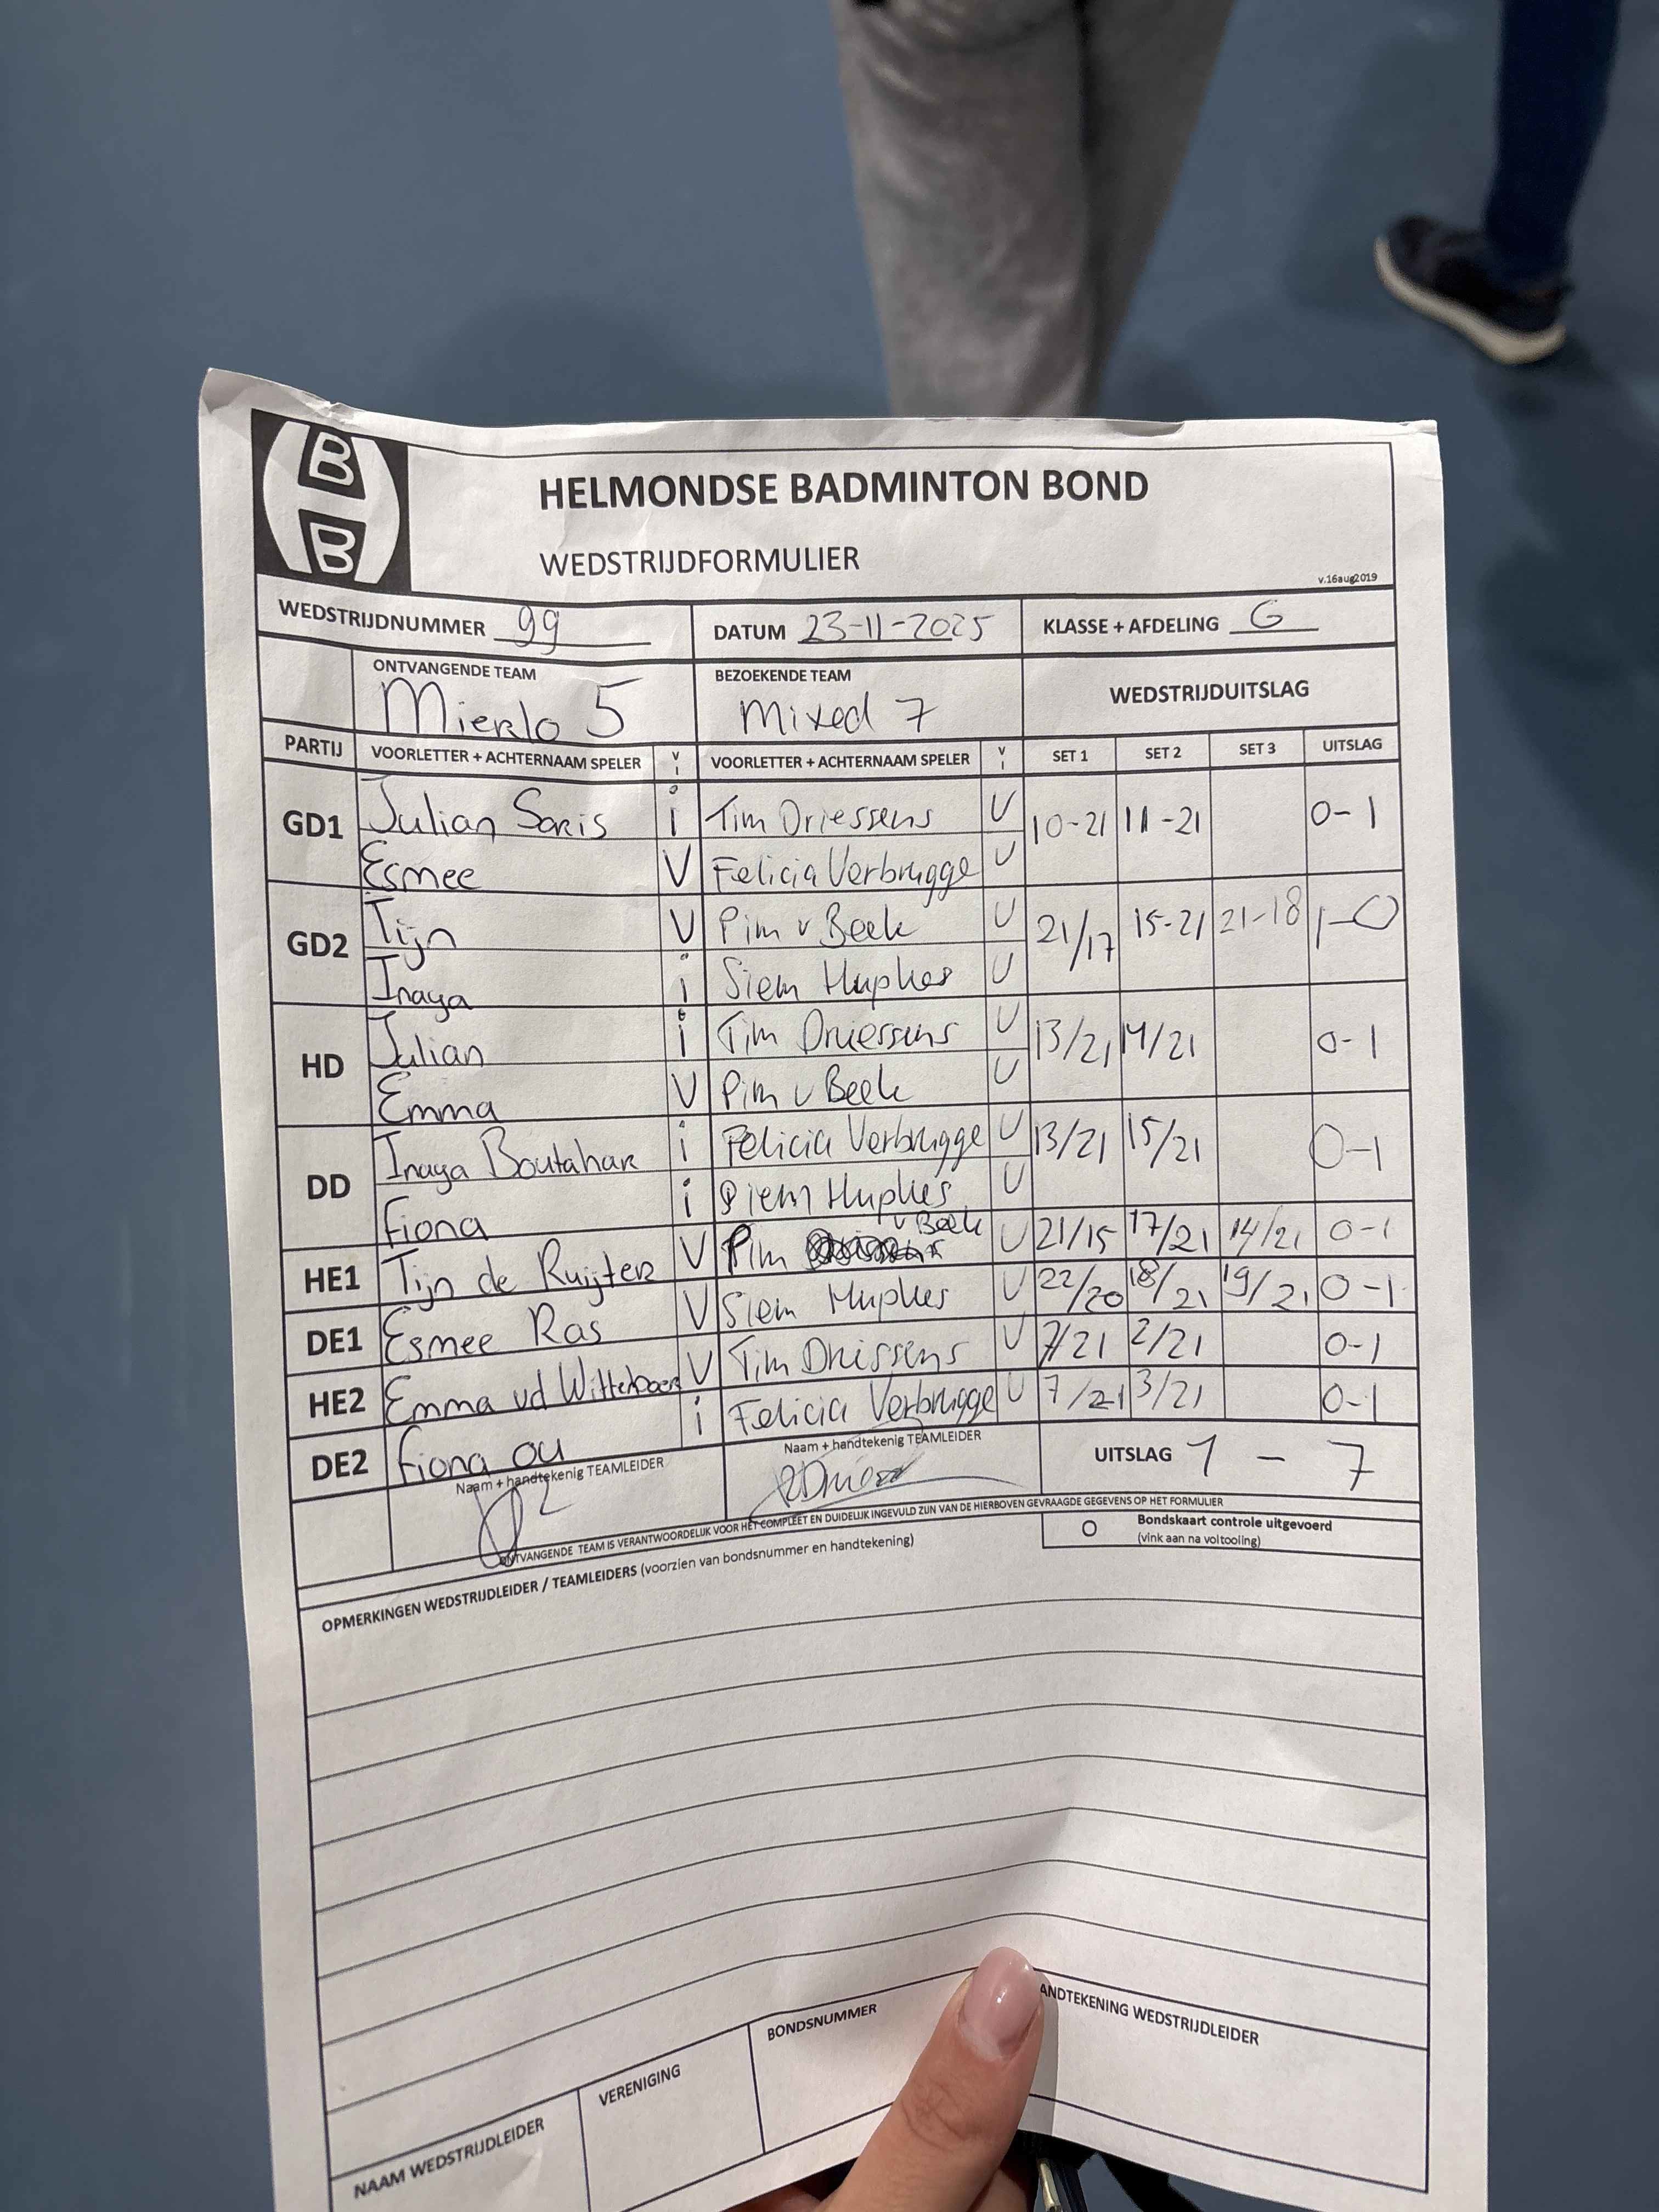 B
B
HELMONDSE BADMINTON BOND
WEDSTRIJDFORMULIER
v.16aug2019
WEDSTRIJDNUMMER 99 DATUM 23-11-2025 KLASSE + AFDELING G
ONTVANGENDE TEAM BEZOEKENDE TEAM WEDSTRIJDUITSLAG
Mierlo 5 Mixed 7
PARTIJ VOORLETTER + ACHTERNAAM SPELER V I VOORLETTER + ACHTERNAAM SPELER V I SET 1 SET 2 SET 3 UITSLAG
GD1 Julian Saris i Tim Driessens V 10-21 11-21 0-1
Esmee V Felicia Verbrugge V
GD2 Tijn V Pim v Beek V 21/17 15-21 21-18 1-0
Inaya i Siem Huphes V
HD Julian i Tim Driessens V 13/21 14/21 0-1
Emma V Pim v Beek V
DD Inaya Boutahar i Felicia Verbrugge V 13/21 15/21 0-1
Fiona i Siem Huphes V
HE1 Tijn de Ruijter V Pim v Beek V 21/15 17/21 14/21 0-1
DE1 Esmee Ras V Siem Huphes V 22/20 18/21 19/21 0-1
HE2 Emma vd Wittenboer V Tim Drissens V 7/21 2/21 0-1
DE2 Fiona ou i Felicia Verbrugge V 7/21 3/21 0-1
Naam + handtekenig TEAMLEIDER Naam + handtekenig TEAMLEIDER UITSLAG 1 - 7
ONTVANGENDE TEAM IS VERANTWOORDELIJK VOOR HET COMPLEET EN DUIDELIJK INGEVULD ZIJN VAN DE HIERBOVEN GEVRAAGDE GEGEVENS OP HET FORMULIER
O Bondskaart controle uitgevoerd
(vink aan na voltooling)
OPMERKINGEN WEDSTRIJDLEIDER / TEAMLEIDERS (voorzien van bondsnummer en handtekening)
NAAM WEDSTRIJDLEIDER VERENIGING BONDSNUMMER ANDTEKENING WEDSTRIJDLEIDER